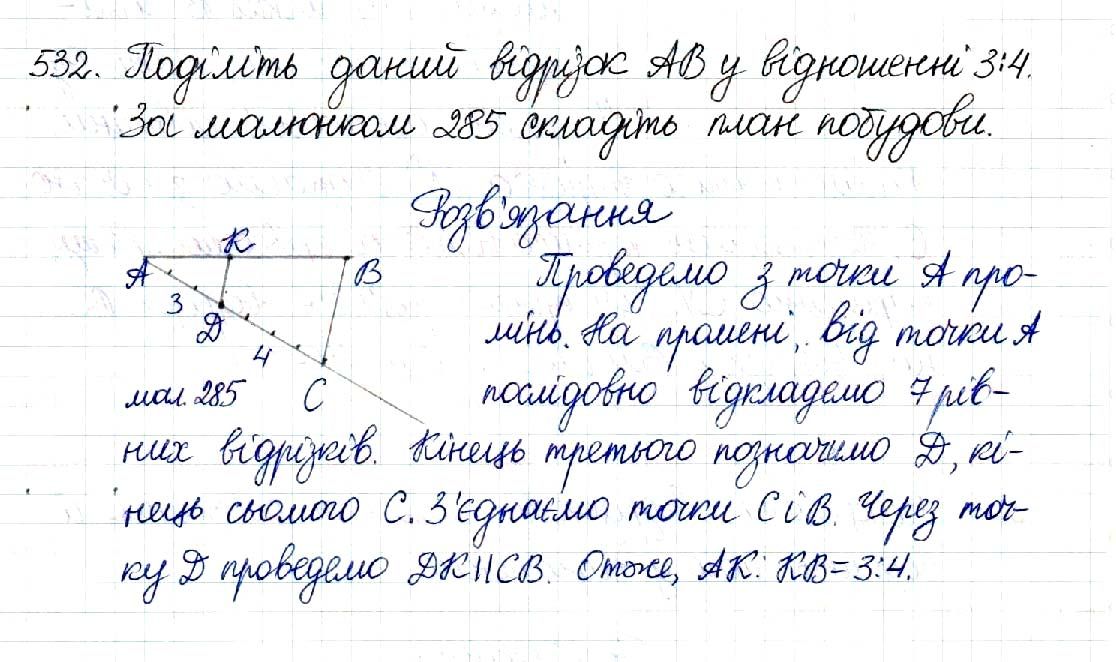 532. Поділіть даний відрізок AB у відношенні 3:4.
За малюнком 285 складіть план побудови.
Розв'язання
K
A
B
3
D
4
C
мал. 285
Проведемо з точки A про-
мінь. На промені, від точки A
послідовно відкладемо 7 рів-
них відрізків. Кінець третього позначимо D, кі-
нець сьомого C. З'єднаємо точки C і B. Через точ-
ку D проведемо DK||CB. Отже, AK: KB=3:4.